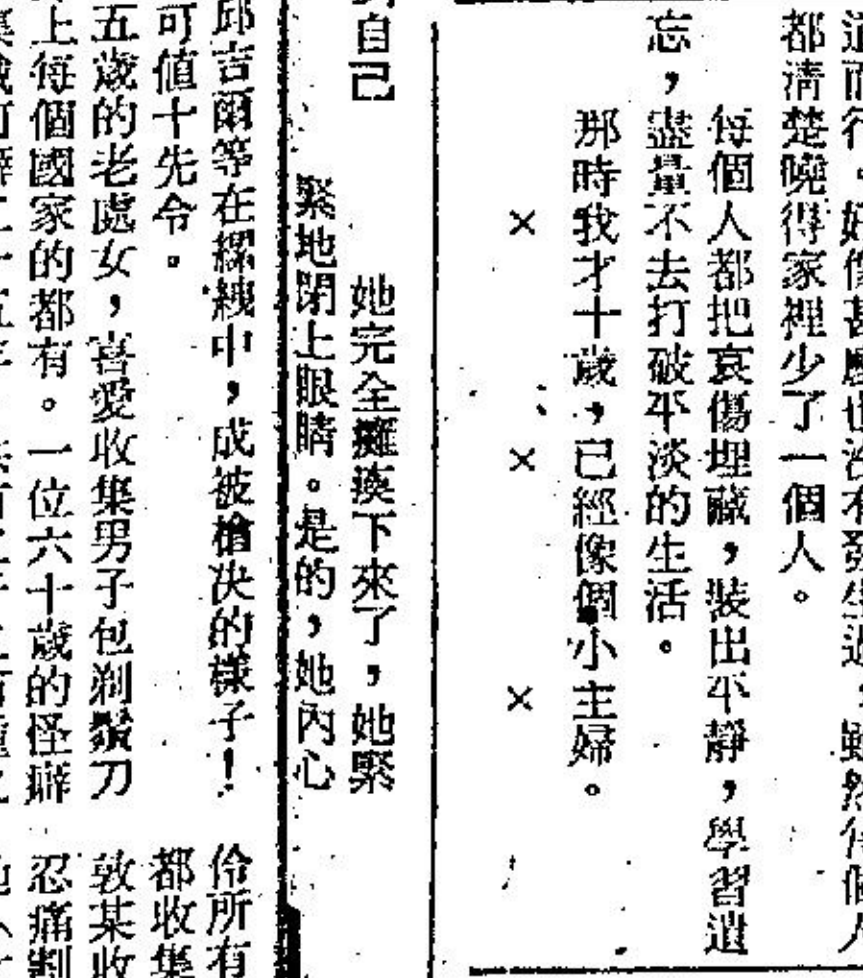 都清楚曉得家裡少了一個人。
每個人都把哀傷埋藏，裝出平靜，學習遺
忘，盡量不去打破平淡的生活。
那時我才十歲，已經像個小主婦。
× × ×
自己
她完全癱瘓下來了，她緊
緊地閉上眼睛。是的，她內心
邱吉爾等在縲絏中，成被槍决的樣子！
可值十先令。
五歲的老處女，喜愛收集男子包剃鬚刀
上每個國家的都有。一位六十歲的怪癖
伶所有
都收集
敦某收
忍痛割